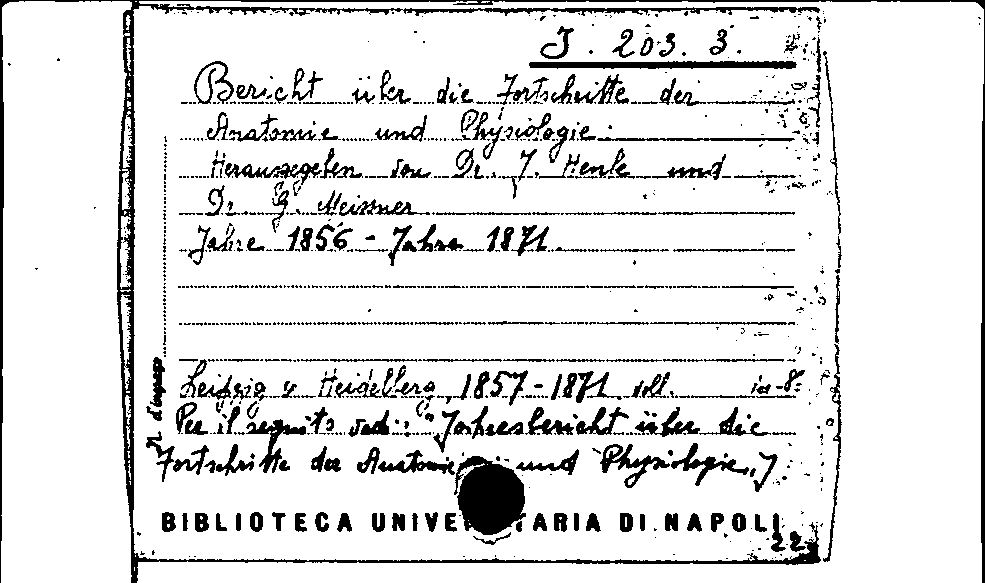 J. 203. 3.
Bericht über die Fortschritte der
Anatomie und Physiologie.
Herausgegeben von Dr. J. Henle und
Dr. G. Meissner
Jahre 1856 - Jahre 1871.
Leipzig u Heidelberg, 1857-1871 voll. in-8:
Per il seguito ved.: "Jahresbericht über die
Fortschritte der Anatomie und Physiologie„
N. d'ingresso
BIBLIOTECA UNIVE TARIA DI NAPOLI
22